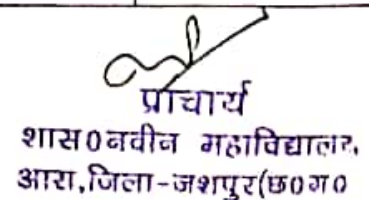 प्राचार्य
शास0नवीन महाविद्यालय,
आरा,जिला-जशपुर(छ0ग0